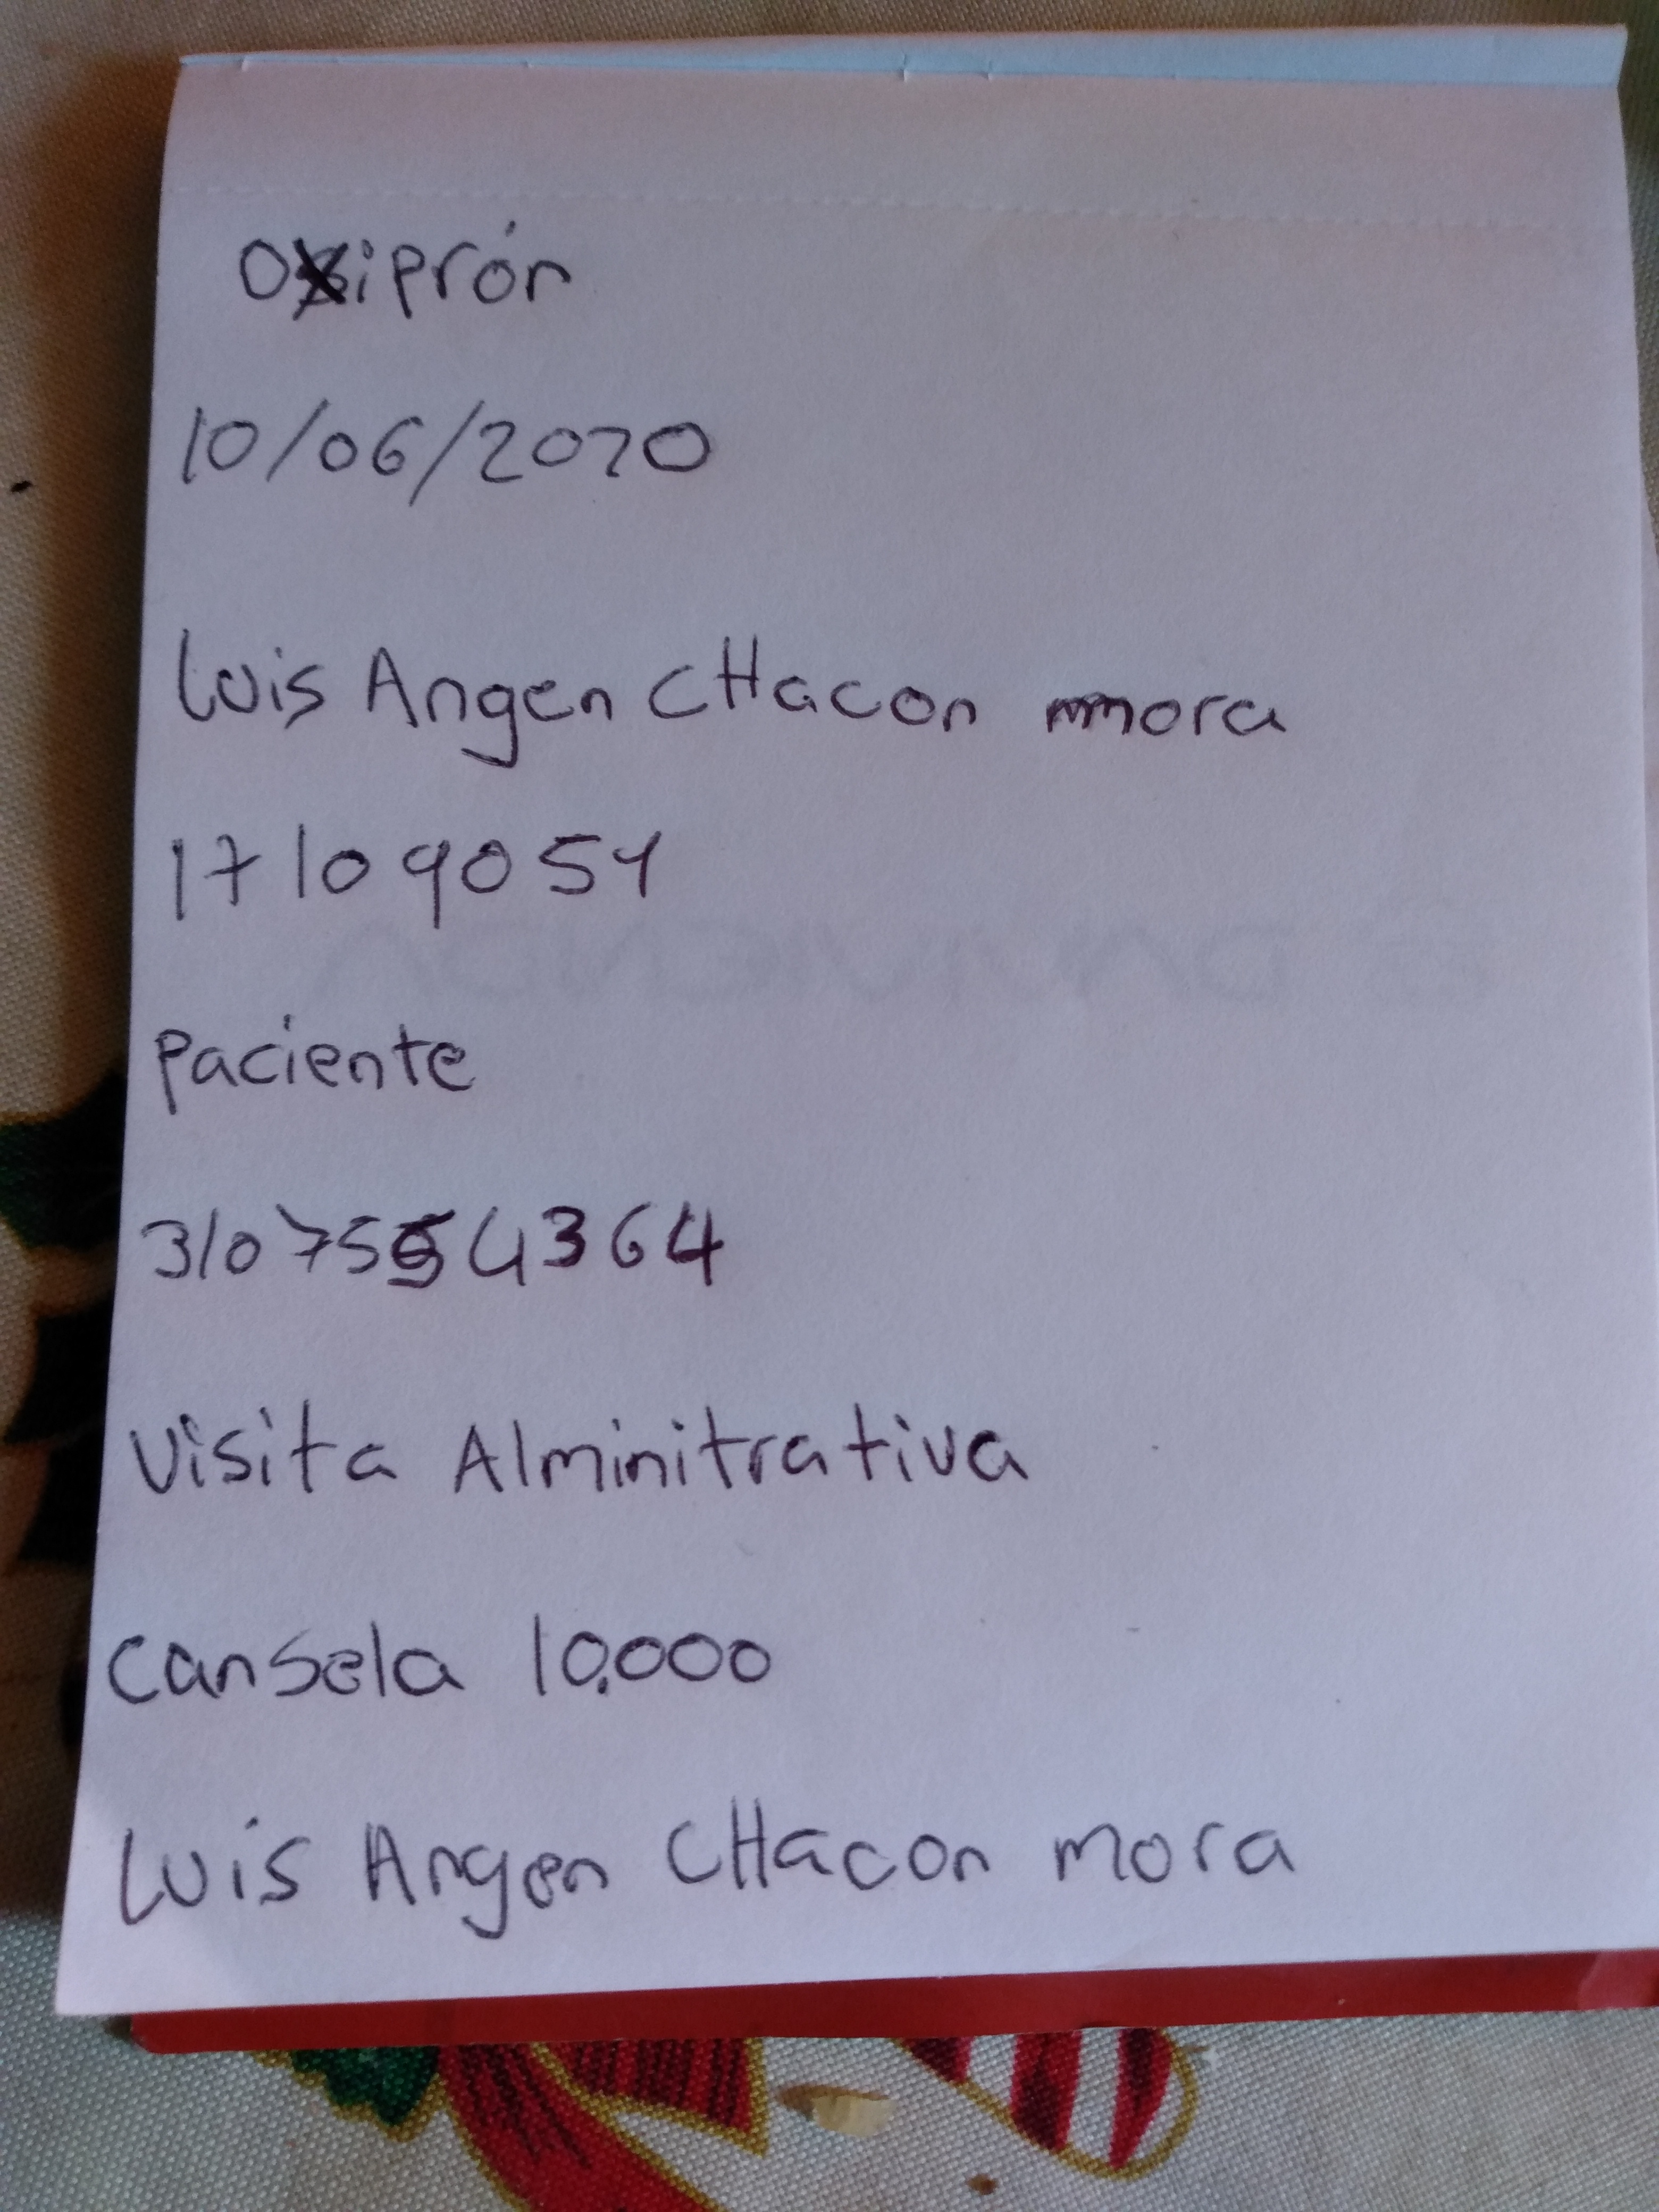 Oxiprón
10/06/2020
Luis Angen CHacon mora
17109054
paciente
3107554364
Visita Alminitrativa
cansela 10.000
Luis Angen CHacon mora